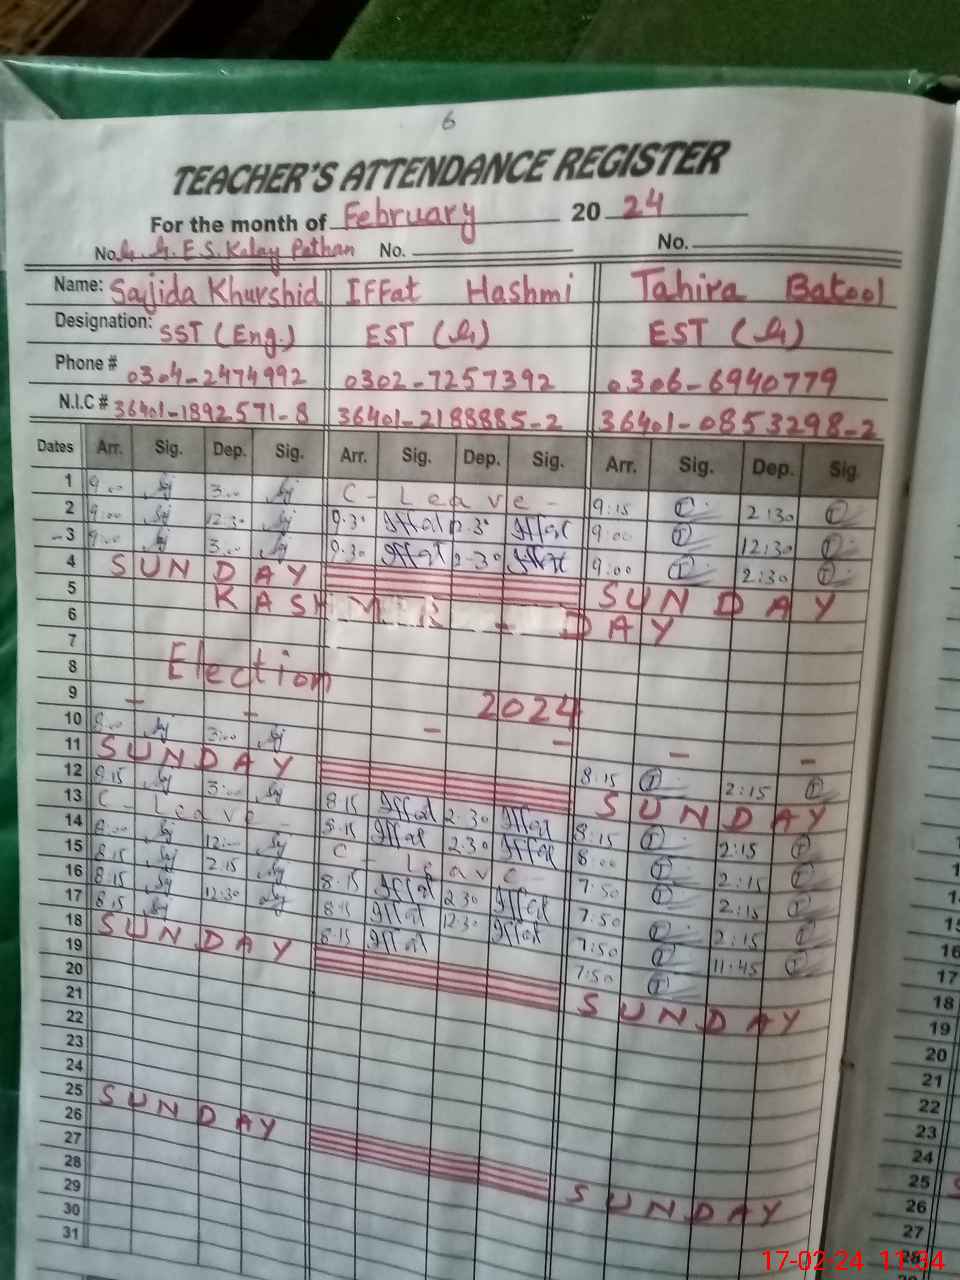 6
TEACHER'S ATTENDANCE REGISTER
For the month of February 20 24
No. G.G.E.S. Kalay Pathan No. No.
Name: Sajida Khurshid IFFat Hashmi Tahira Batool
Designation: SST (Eng.) EST EST
Phone # 0304-2474992 0302-7257392 0306-6940779
N.I.C # 36401-1892571-8 36401-2188885-2 36401-0853298-2
Dates Arr. Sig. Dep. Sig. Arr. Sig. Dep. Sig. Arr. Sig. Dep. Sig.
1 9:00 3:00 C-Leave- 9:15 2:30
2 9:00 12:30 9:30 Iffat 12:30 Iffat 9:00 12:30
3 9:00 3:00 9:30 Iffat 2:30 Iffat 9:00 2:30
4 SUNDAY SUNDAY
5 KASHMIR - DAY
6
7
8 Election 2024
9 - - - - - -
10 3:00 8:15 2:15
11 SUNDAY SUNDAY
12 9:15 3:00 8:15 Iffat 2:30 Iffat 8:15 2:15
13 C-Leave- 8:15 Iffat 2:30 Iffat 8:00 2:15
14 8:00 12:00 C-Leave- 7:50 2:15
15 8:15 2:15 8:15 Iffat 2:30 Iffat 7:50 2:15
16 8:15 12:30 8:15 Iffat 12:30 Iffat 7:50 11:45
17 8:15 8:15 Iffat 7:50
18 SUNDAY SUNDAY
19
20
21
22
23
24
25 SUNDAY SUNDAY
26
27
28
29
30
31
15
16
17
18
19
20
21
22
23
24
25
26
27
28
17-02-24 11:34